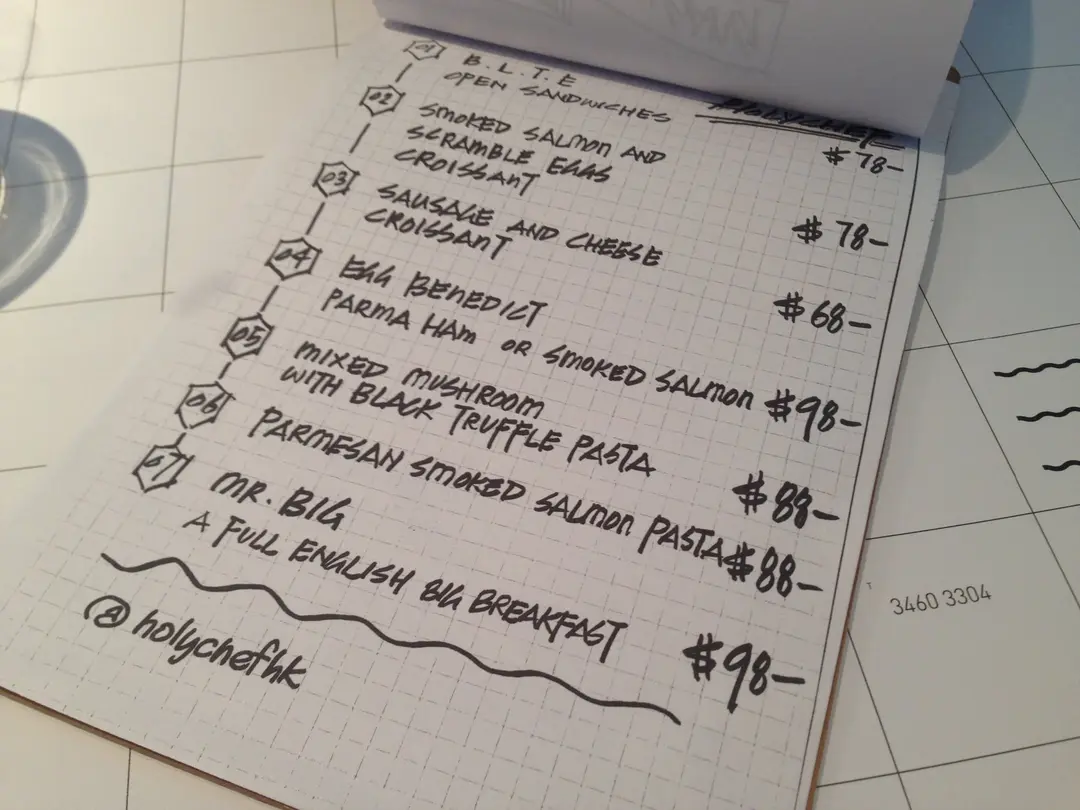 #HOLYCHEF
01 B.L.T.E
OPEN SANDWICHES $78-
02 SMOKED SALMON AND
SCRAMBLE EGGS
CROISSANT $78-
03 SAUSAGE AND CHEESE
CROISSANT $68-
04 EGG BENEDICT
PARMA HAM OR SMOKED SALMON $98-
05 MIXED MUSHROOM
WITH BLACK TRUFFLE PASTA $88-
06 PARMESAN SMOKED SALMON PASTA $88-
07 MR. BIG
A FULL ENGLISH BIG BREAKFAST $98-
@holychefhk
T 3460 3304